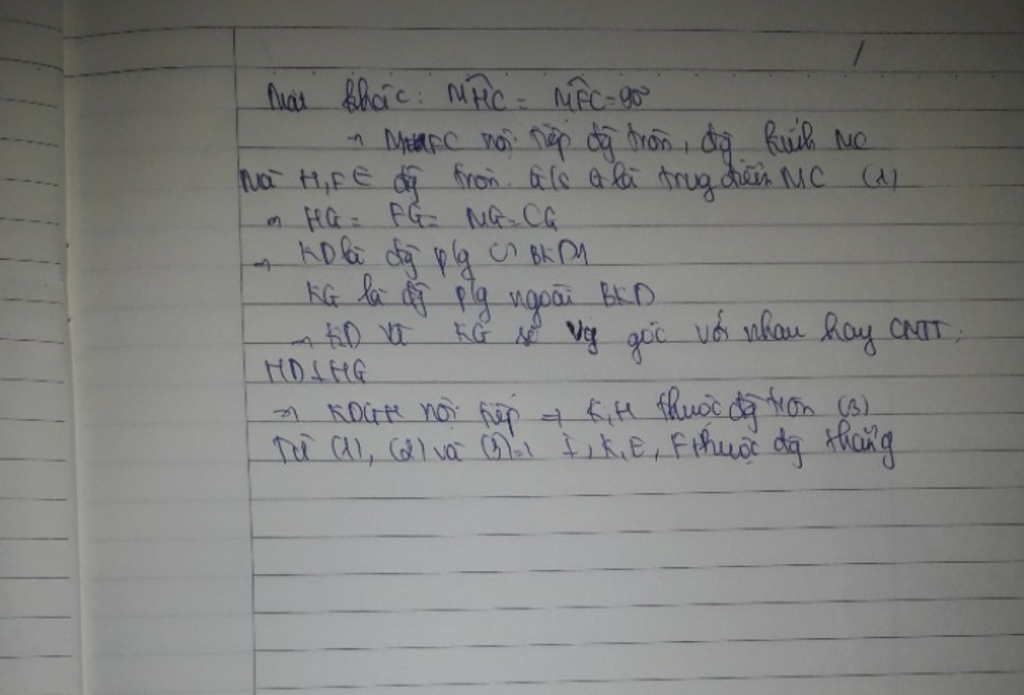 Mặt khác: MHC = MFC = 90°
→ MHFC nội tiếp đg tròn, đg kính MC
Mà H, F ∈ đg tròn. G là trug điểm MC (1)
→ HG = FG = MG = CG
→ KD là đg plg BKM
KG là đg plg ngoài BKD
→ KD và KG sẽ vg góc với nhau hay CMTT:
HD⊥HG
→ KDGH nội tiếp → K, H thuộc đg tròn (3)
Từ (1), (2) và (3) → I, K, E, F thuộc đg thẳng